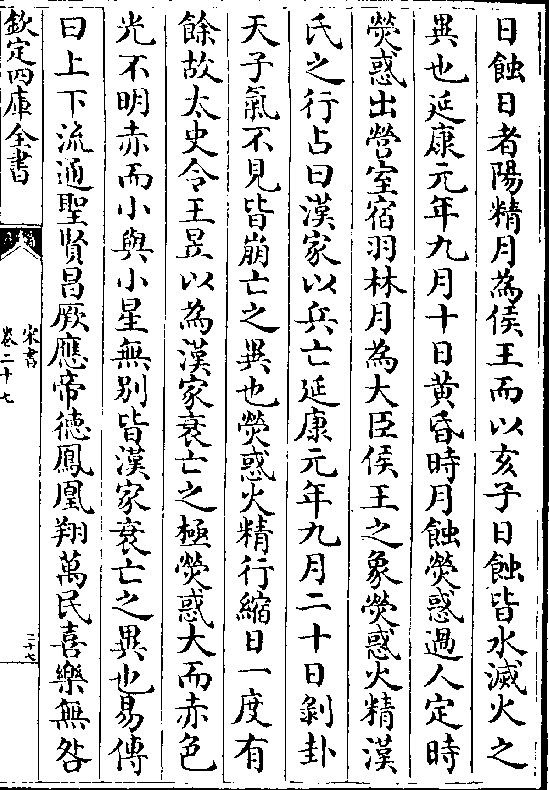 日蝕日者陽精月為侯王而以亥子日蝕皆水滅火之
異也延康元年九月十日黄昏時月蝕熒惑過人定時
熒惑出營室宿羽林月為大臣侯王之象熒惑火精漢
氏之行占曰漢家以兵亡延康元年九月二十日剝卦
天子氣不見皆崩亡之異也熒惑火精行縮日一度有
餘故太史令王昱以為漢家衰亡之極熒惑大而赤色
光不明赤而小與小星無别皆漢家衰亡之異也易傳
曰上下流通聖賢昌厥應帝德鳳凰翔萬民喜樂無咎
欽定四庫全書
宋書
卷二十七
三十七